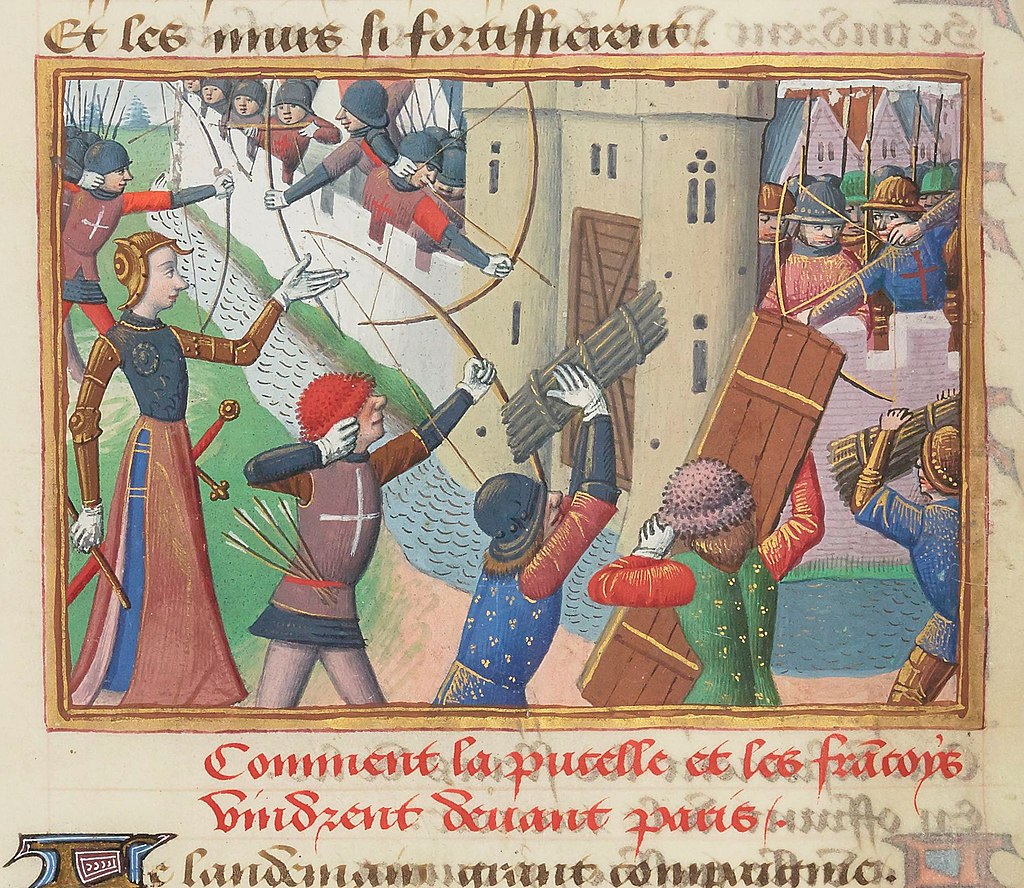 Et les murs si fortiffierent.
Comment la pucelle et les frãcoys
vindrent devant paris /.
e landemain grant compaignie.